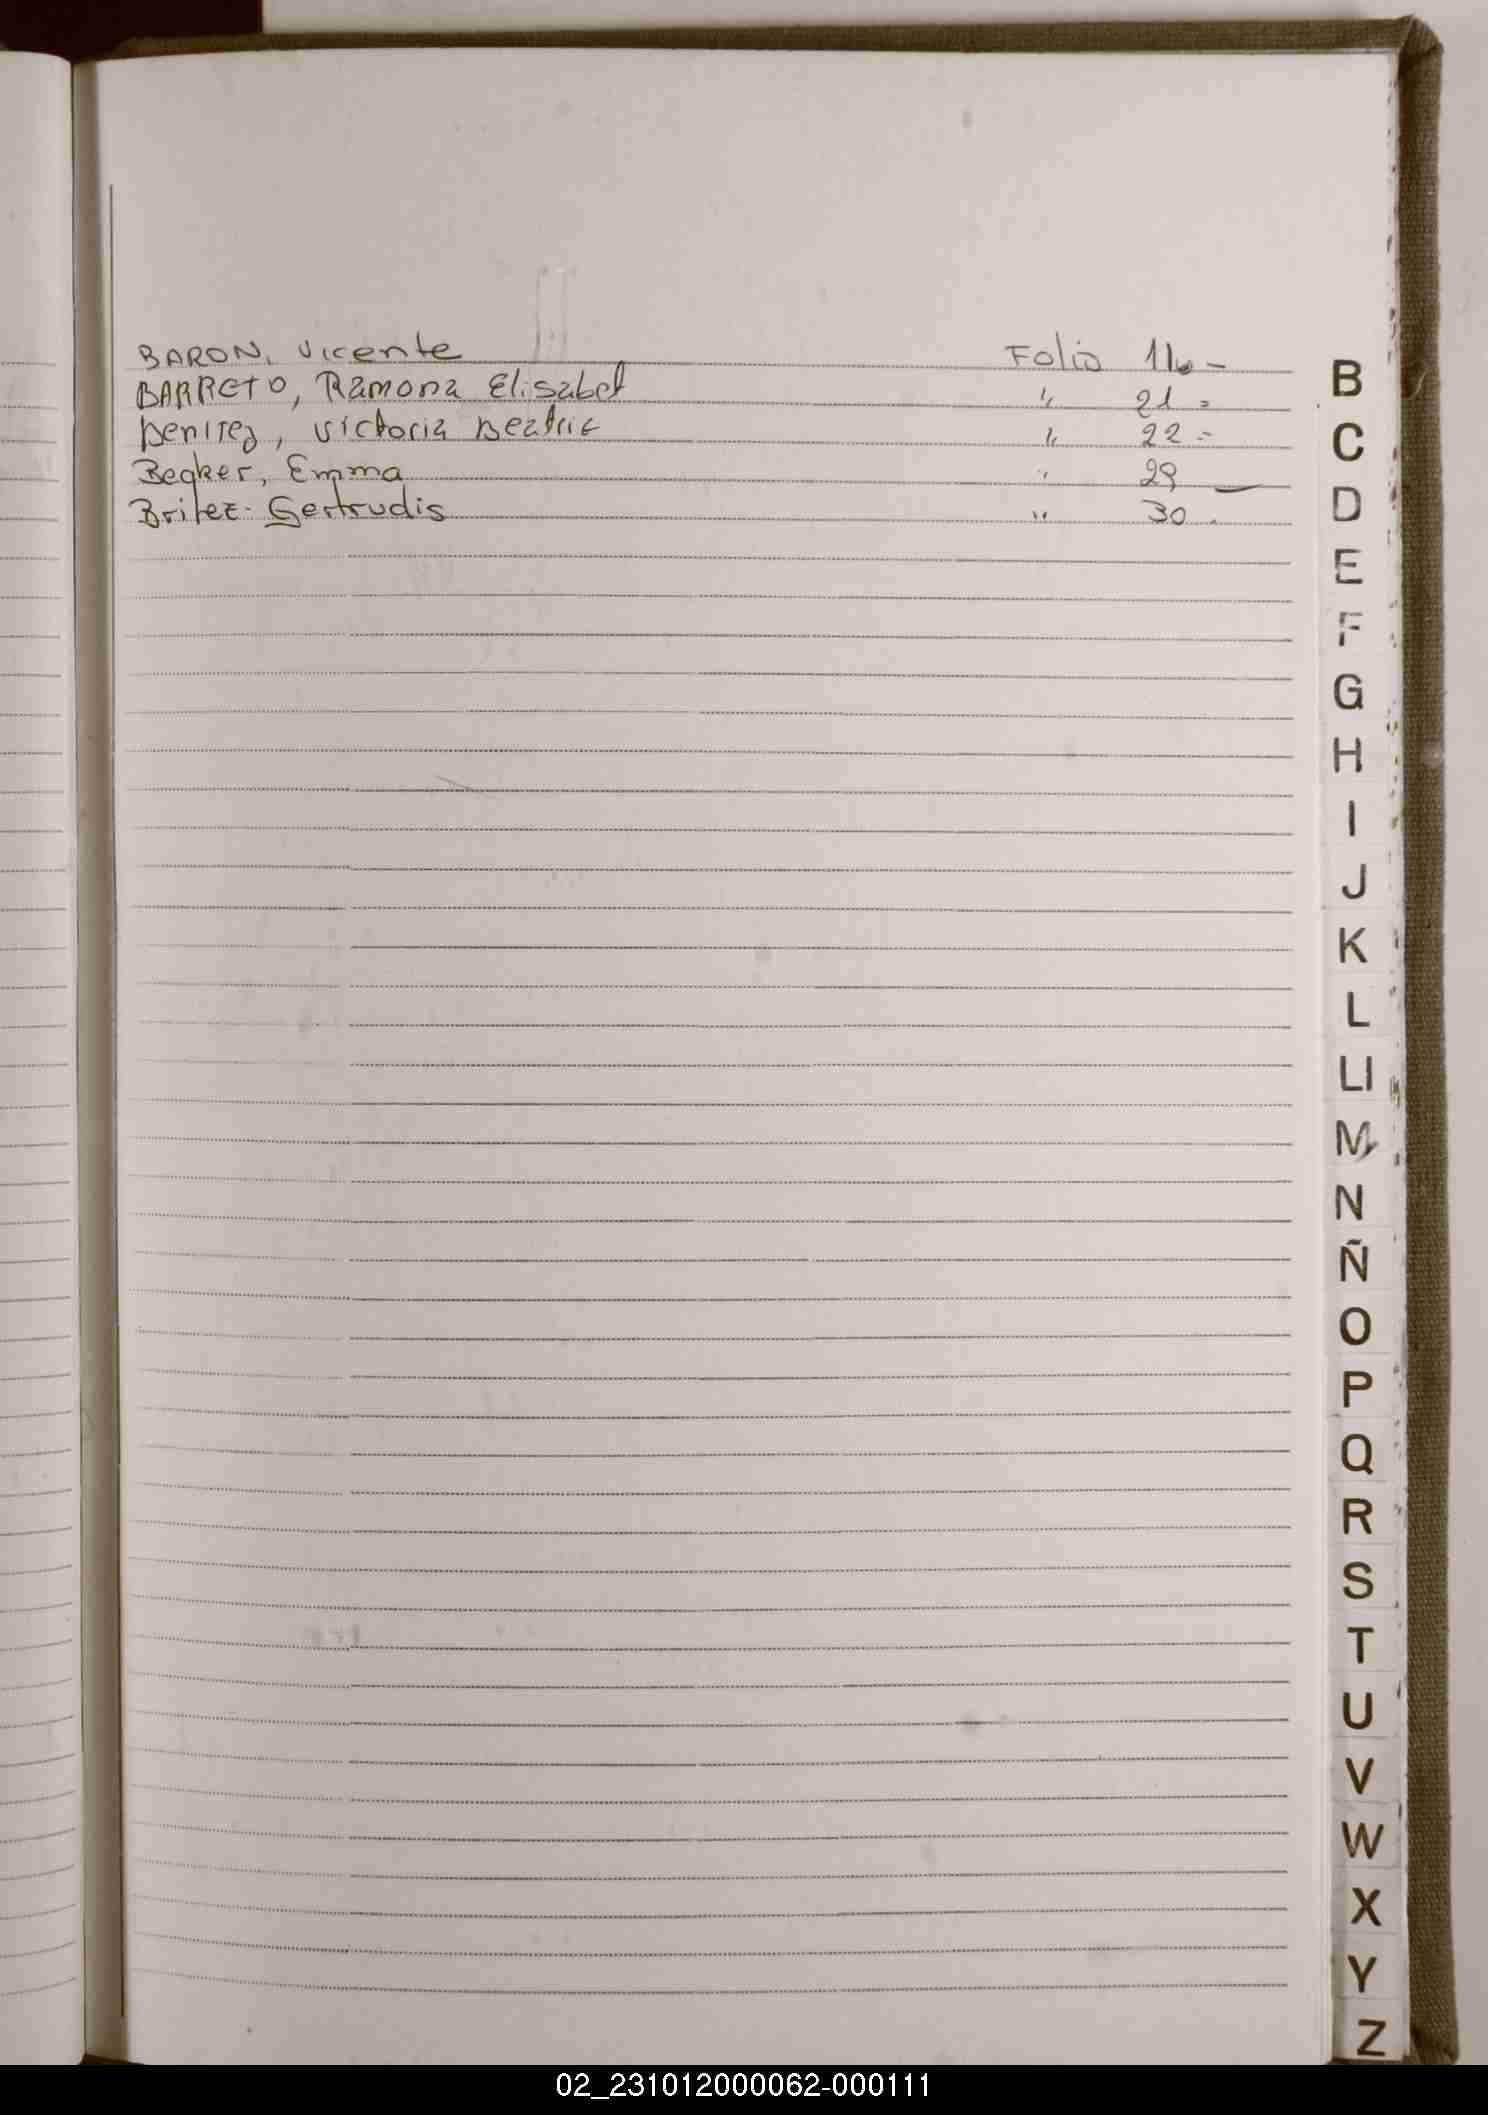 BARON, Vicente Folio 16-
BARRETO, Ramona Elisabet " 21 =
Benitez, Victoria Beatriz " 22 =
Begker, Emma " 29
Britez. Gertrudis " 30.
B
C
D
E
F
G
H
I
J
K
L
Ll
M
N
Ñ
O
P
Q
R
S
T
U
V
W
X
Y
Z
02_231012000062-000111